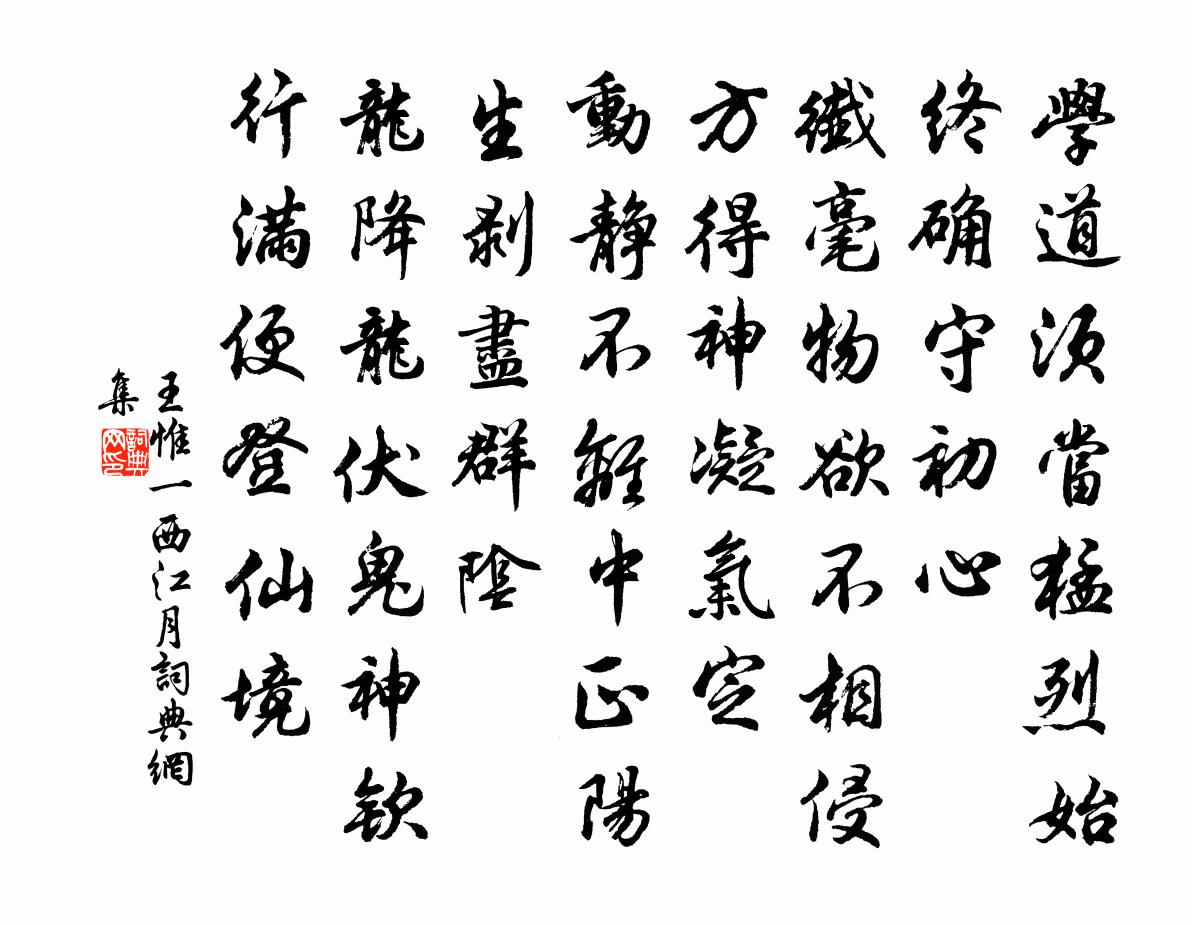 學道須當猛烈始
終确守初心
纖毫物欲不相侵
方得神凝氣定
動靜不離中正陽
生剥盡群陰
龍降龍伏鬼神欽
行滿便登仙境
王惟一西江月詞典網
集
詞典网印